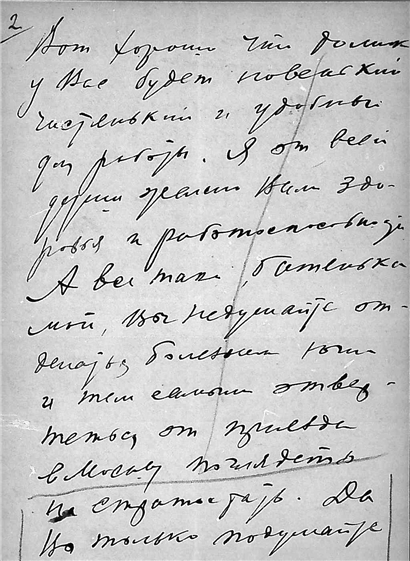 2
Вот хорошо что домик
у Вас будет новенький
чистенький и удобный
для работы. Я от всей
души желаю Вам здо-
ровья и работоспособности
А все таки, батенька
мой, Вы не думайте от-
делаться болезнью
и тем самым отвер-
теться от приезда
в Москву поглядеть
на стратостат. Да
Вы только подумайте